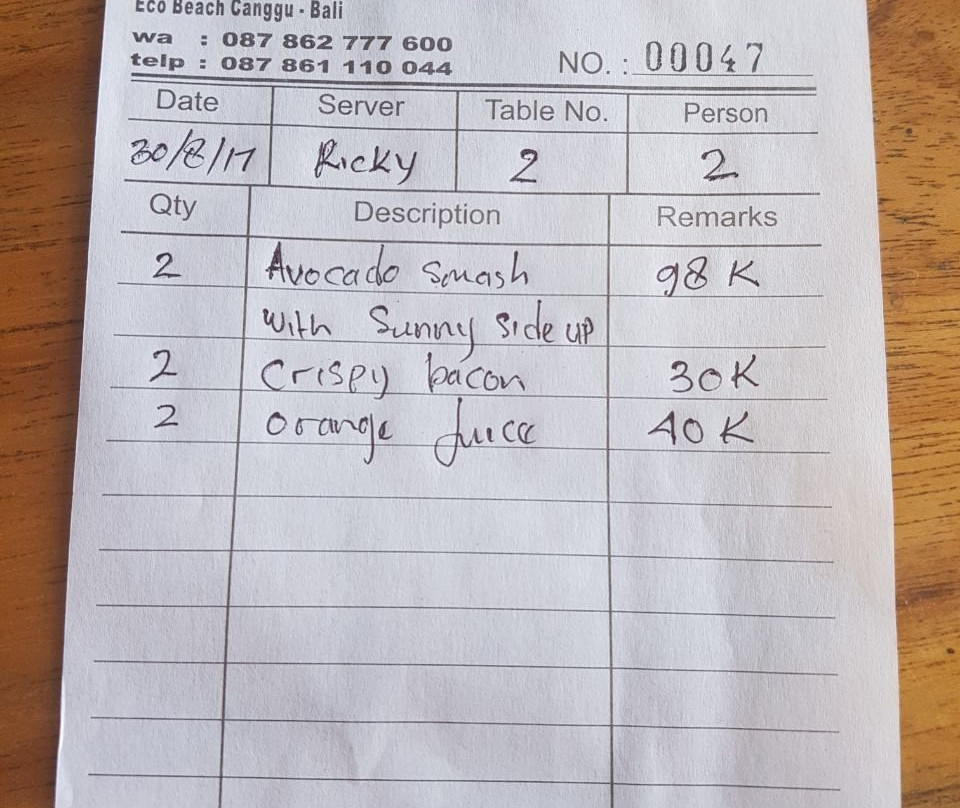 Eco Beach Canggu - Bali
wa : 087 862 777 600
telp : 087 861 110 044
NO. : 00047
Date Server Table No. Person
30/8/17 Ricky 2 2
Qty Description Remarks
2 Avocado Smash 98 K
with Sunny Side up
2 Crispy bacon 30K
2 Orange Juice 40 K